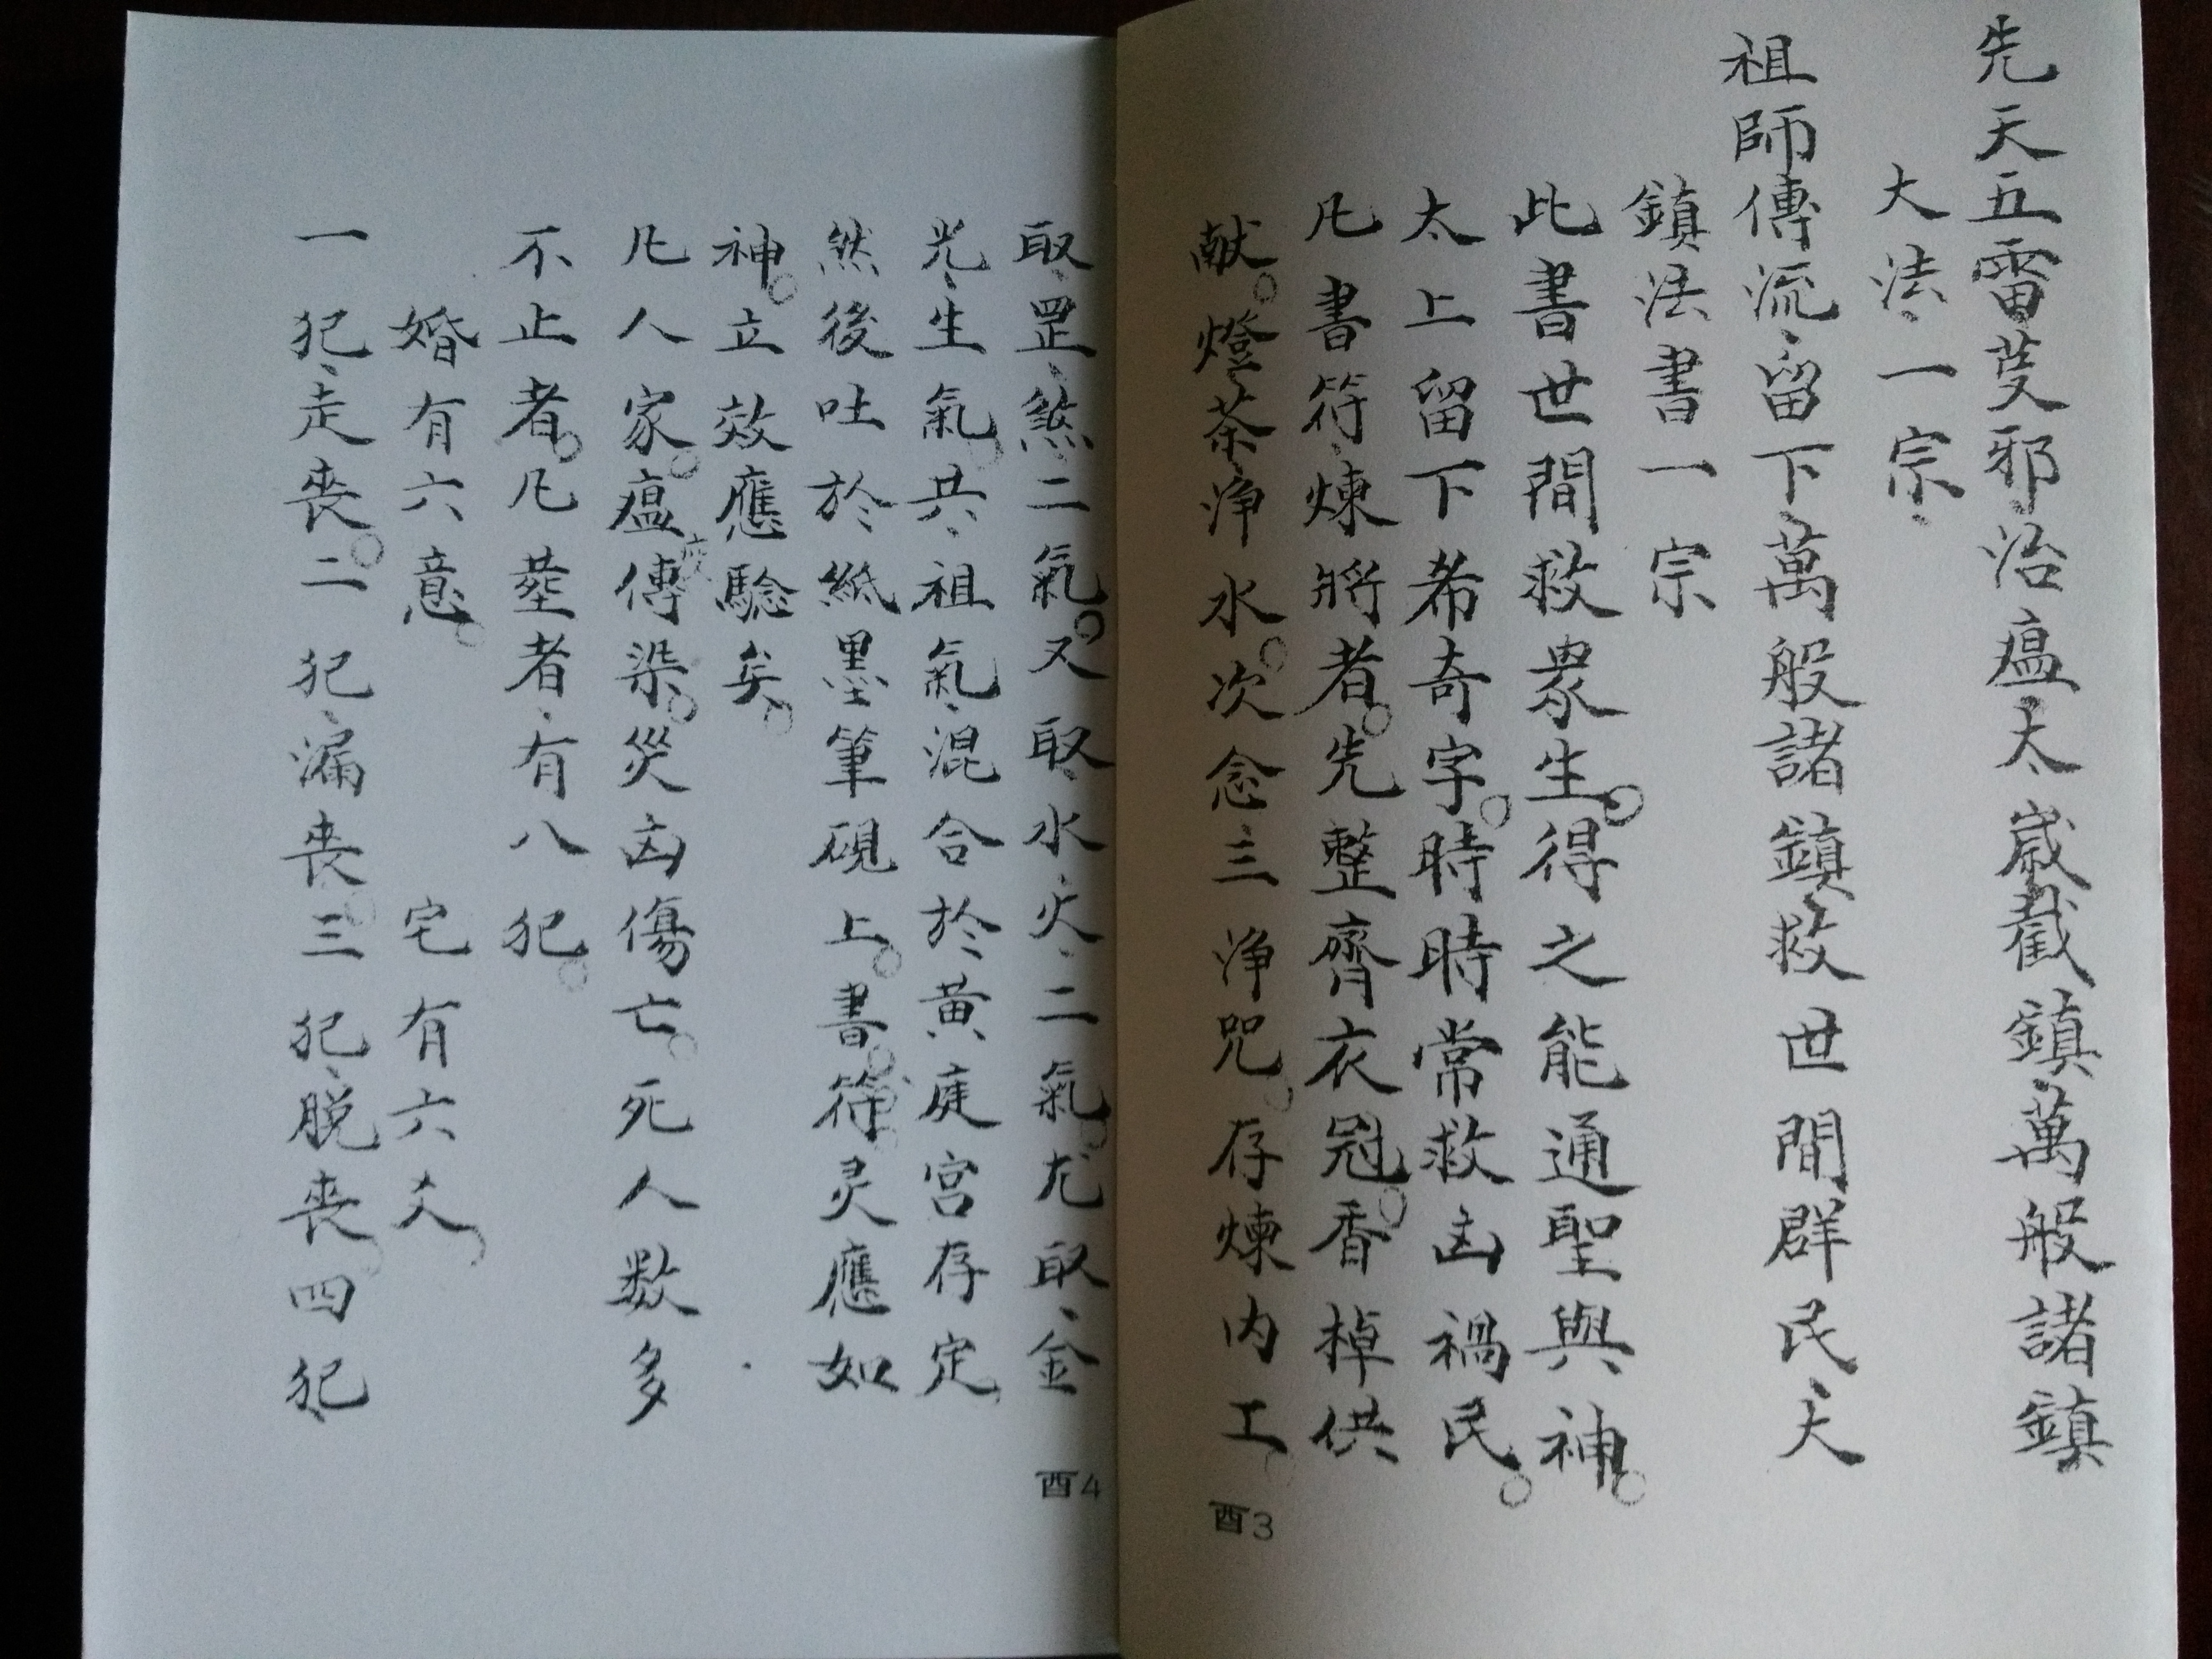 先天五雷𫈉邪治瘟太歲截鎮萬般諸鎮
大法一宗
祖師傳流留下萬般諸鎮救世間群民大
鎮法書一宗
此書世間救衆生。得之能通聖與神。
太上留下希奇字。時時常救凶禍民。
凡書符煉將者。先整齊衣冠。香棹供
献。燈茶淨水。次念三淨咒。存煉内工。
酉3
取罡煞二氣。又取水火二氣。尤取金
光生氣。共祖氣混合於黄庭宫存定。
然後吐於紙墨筆硯上。書符灵應如
神。立效應驗矣。
凡人家。瘟傳染。災凶傷亡。死人数多
不止者。凡塟者有八犯。
婚有六意。 宅有六丈。
一犯走丧。二犯漏丧。三犯脱丧。四犯
酉4